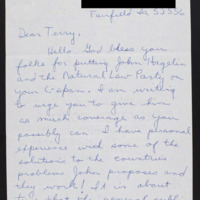 Fairfield Ia 52556
Dear Terry,
Hello God bless you
folks for putting John Hagelin
and the Natural Law Party on
your C-Span. I am writing
to urge you to give him
as much coverage as you
possibly can. I have personal
experience with some of the
solutions to the countries
problems John proposes and
they work! It is about
time that the general